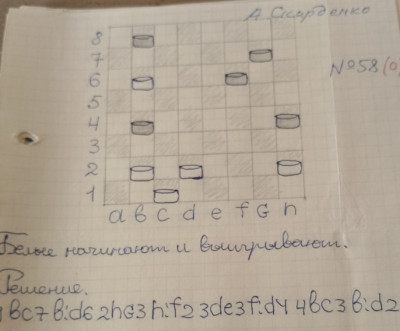 А. Скляренко
8
7
№58(
6
5
4
3
2
1
a b c d e f G h
Белые начинают и выигрывают.
Решение.
1 bc7 b:d6 2hG3 h:f2 3de3 f:d4 4bc3 b:d2